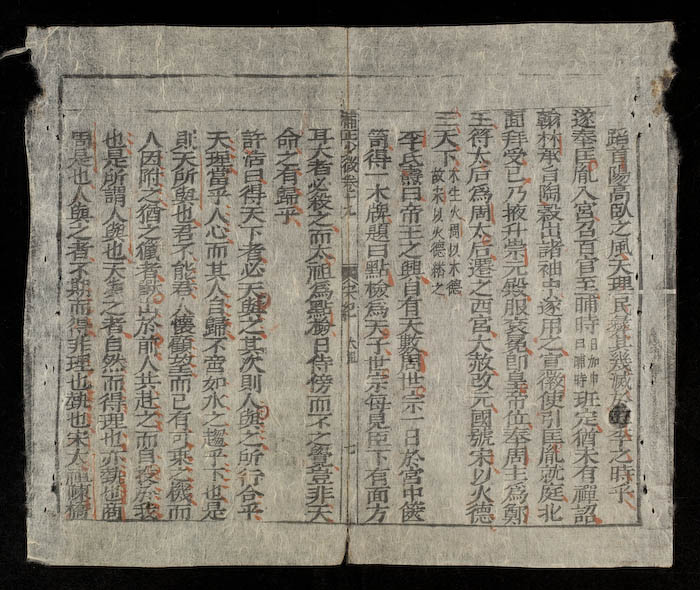 蹈首陽高臥之風天理民彝其幾滅於五季之時乎
遂奉匡胤入宮召百官至晡時日加申曰晡時班定猶未有禪詔
翰林承旨陶穀出諸袖中遂用之宣徽使引匡胤就庭北
面拜受已乃掖升崇元殿服袞冕即皇帝位奉周主爲鄭
王符太后爲周太后遷之西宮大赦改元國號宋以火德
王天下木生火周以木德故宋以火德継之
李氏燾曰帝王之興自有天數周世宗一日於宮中篋
笥得一木牌題曰點檢爲天子世宗每見臣下有面方
耳大者必殺之而太祖爲點檢日侍傍而不之覺豈非天
命之有歸乎
補正少微卷十九 宋紀 太祖 七
許浩曰得天下者必天與之其次則人與之所行合乎
天理當乎人心而其人自歸不啻如水之趨乎下也是
則天所與也君不能君人懷顧望而已有可乘之機而
人因附之猶之 者 於前人共赴之而自投於我
也是所謂人與也天與之者自然而得理也亦勢也商
周是也人與之者不期而得非理也勢也宋太祖陳橋